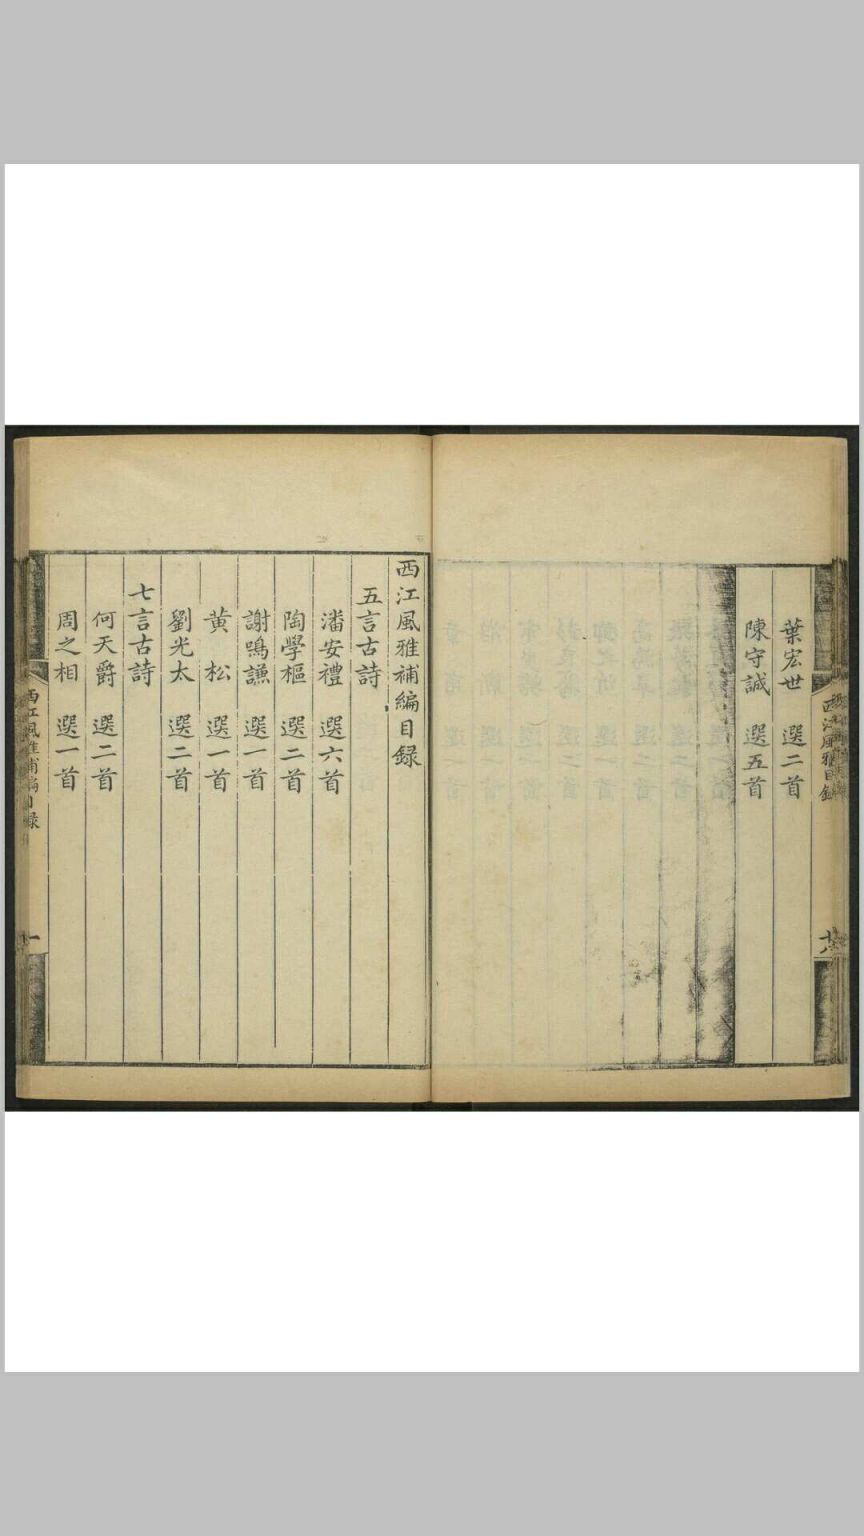 葉宏世 選二首
陳守誠 選五首
西江風雅目錄
西江風雅補編目録
五言古詩
潘安禮 選六首
陶學樞 選二首
謝鳴謙 選一首
黄松 選一首
劉光太 選二首
七言古詩
何天爵 選二首
周之相 選一首
西江風雅補編目録
一